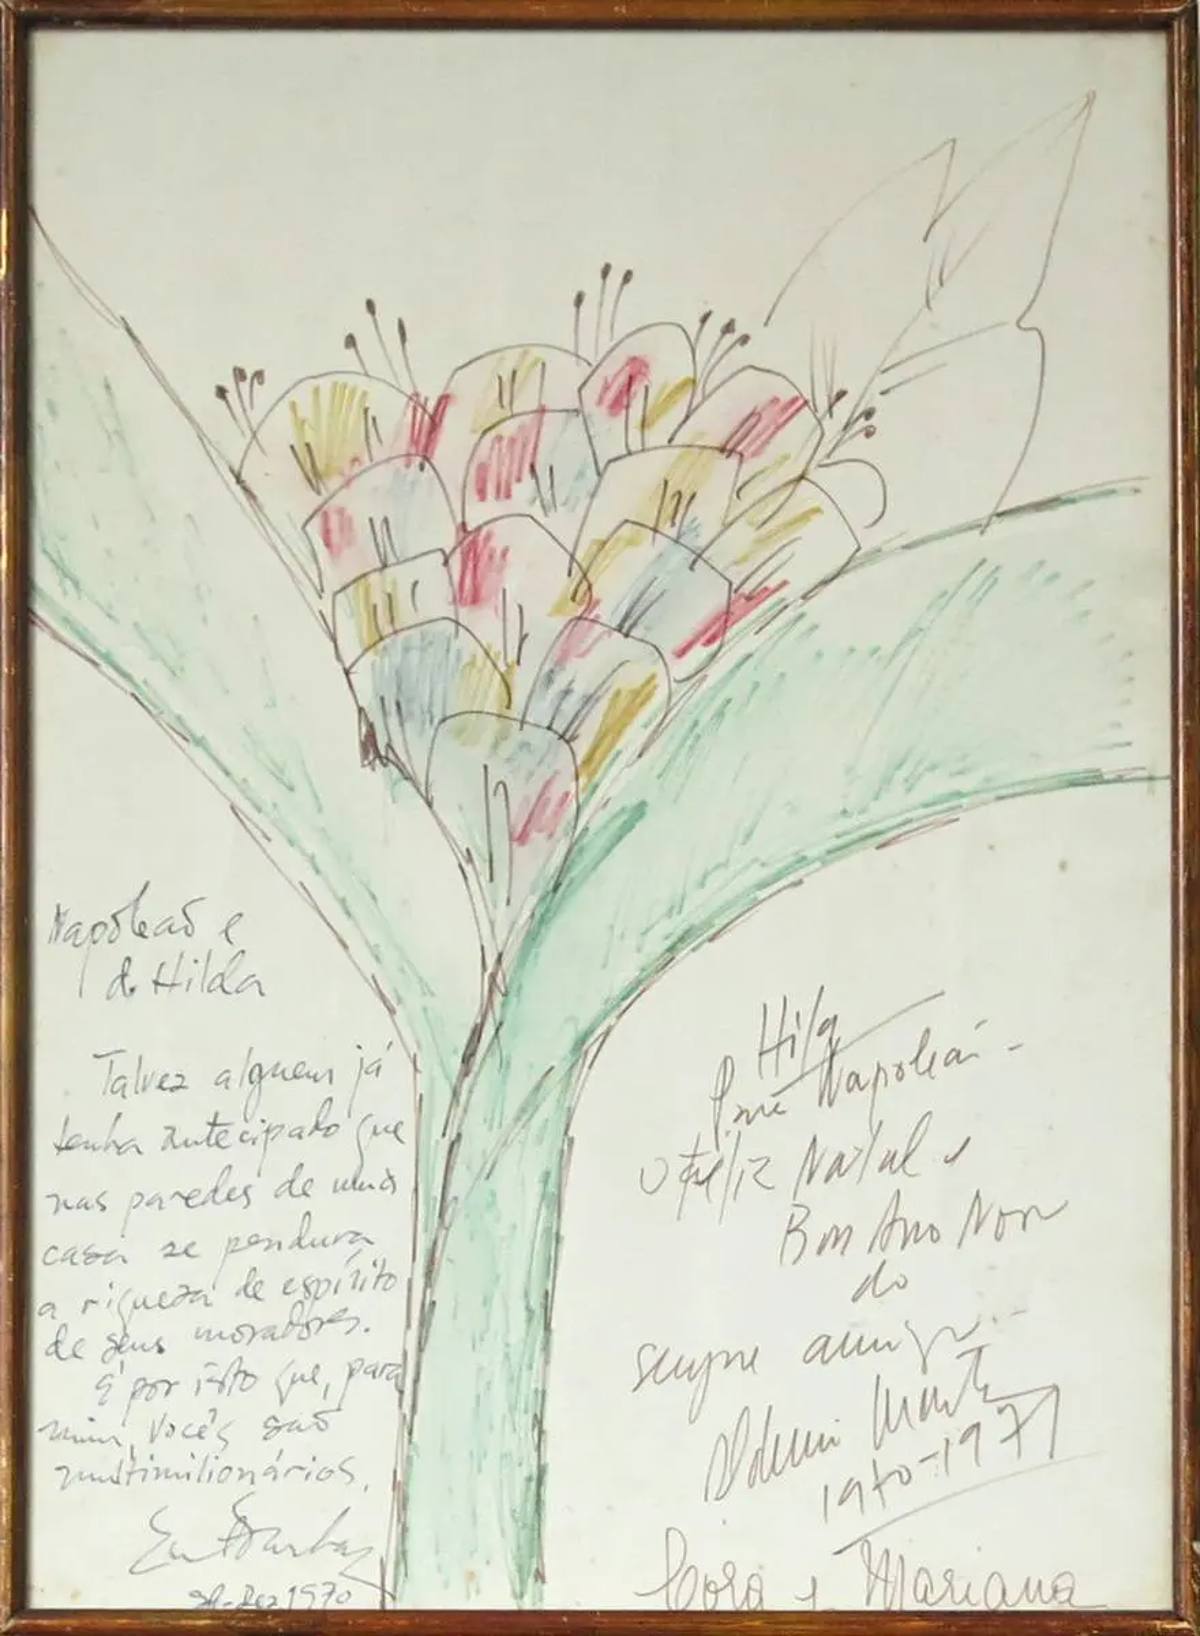 Napoleão e
d. Hilda
Talvez alguem já
tenha antecipado que
nas paredes de uma
casa se pendura
a riqueza de espírito
de seus moradores.
É por isto que, para
mim, vocês são
multimilionários.
Dez 1970
Napoleão -
Feliz Natal e
Bom Ano Novo
do
sempre amigo
Aldemir Martins
1970-1971
Cora e Mariana